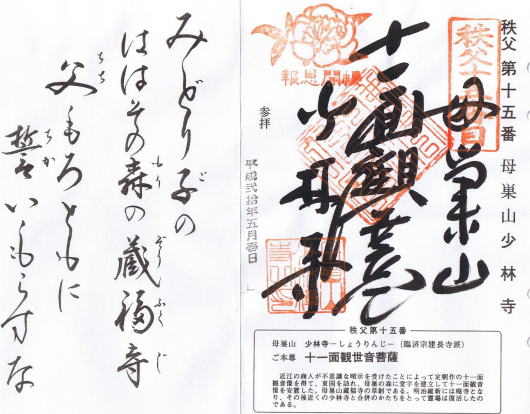 秩父 第十五番 母巣山 少林寺
秩父十五番
母巣山
十一面観世音
少林寺
参拝
平成弐拾年五月壱日
秩父第十五番
母巣山 少林寺−しょうりんじ−（臨済宗建長寺派）
ご本尊 十一面観世音菩薩
近江の商人が不思議な暗示を受けたことによって定朝作の十一面
観音像を得て、東国を訪れ、母巣の森に堂宇を建立して十一面観世
音像を安置した。母巣山蔵福寺の草創である。明治維新には廃寺とな
り、その後近くの少林寺と合併のかたちをとって霊場は復活したもの
である。
みどり子の
ははその森の蔵福寺
父もろともに
誓いもらすな